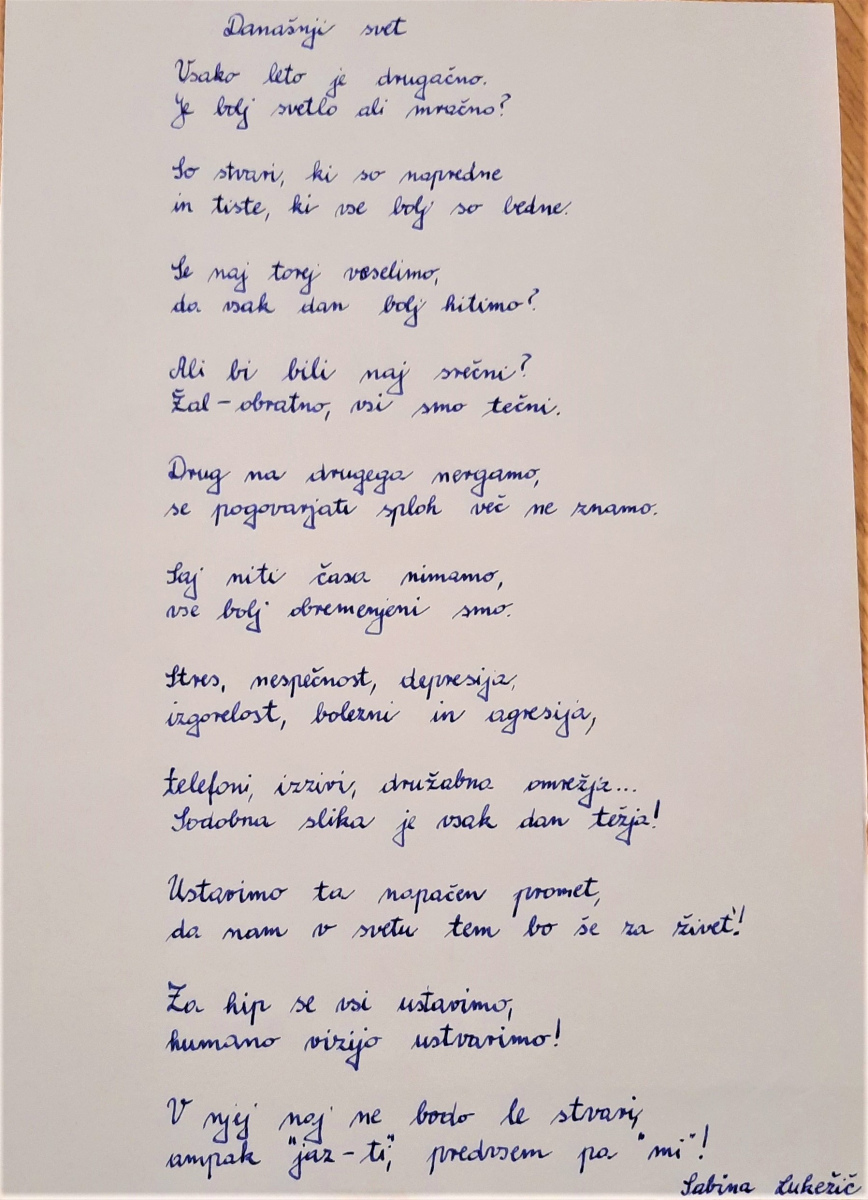 Današnji svet
Vsako leto je drugačno.
Je bolj svetlo ali mračno?
So stvari, ki so napredne
in tiste, ki vse bolj so bedne.
Se naj torej veselimo,
da vsak dan bolj hitimo?
Ali bi bili naj srečni?
Žal - obratno, vsi smo tečni.
Drug na drugega nergamo,
se pogovarjati sploh več ne znamo.
Saj niti časa nimamo,
vse bolj obremenjeni smo.
Stres, nespečnost, depresija,
izgorelost, bolezni in agresija,
telefoni, izzivi, družabna omrežja...
Sodobna slika je vsak dan težja!
Ustavimo ta napačen promet,
da nam v svetu tem bo še za živet'!
Za hip se vsi ustavimo,
humano vizijo ustvarimo!
V njej naj ne bodo le stvari,
ampak "jaz - ti", predvsem pa "mi"!
Sabina Lukežič